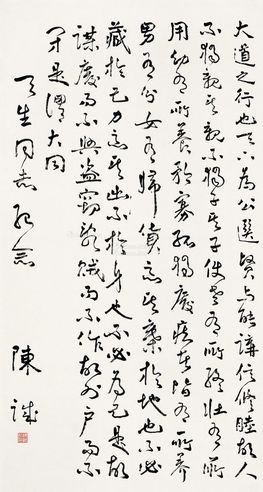 大道之行也天下為公選賢与能講信修睦故人
不獨親其親不獨子其子使老有所終壯有所
用幼有所養矜寡孤獨廢疾者皆有所養
男有份女有歸貨惡其棄於地也不必
藏於己力惡其出不於身也不必為己是故
謀廢而不興盜竊亂賊而不作故外戶而不
閉是謂大同
天生同志 紀念
陳誠